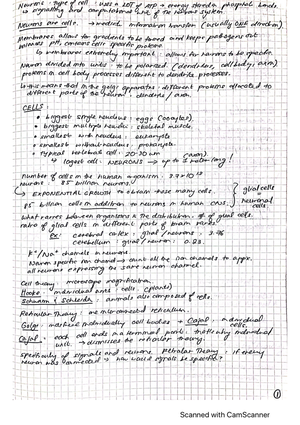 Neurons: type of cell: uses ATP → energy stored in phosphate bonds.
↳ signaling and computational unit of the nervous system
Neurons are cells. → mediate information transfer (usually one direction)
Membranes allow ion gradients to be formed and keep pathogens out
between cells, contains cells' specific proteins.
↳ membranes extremely important: allows for neurons to be specific.
Neuron divided into units → to be polarized (dendrites, cell body, axon)
proteins in cell body processes different to dendrite processes.
↳ this means that in the golgi apparatus: different proteins allocated to
different parts of the neuron: dendrite / axon.
CELLS:
• biggest single nucleus: eggs (oocytes)
• biggest multiple nuclei: skeletal muscle.
• smallest with nucleus: eukaryote
• smallest without nucleus: prokaryote.
• typical vertebrate cell: 20-30um
↳ longest cell: NEURONS → up to 3 metres long! (axons)
Number of cells in the human organism: 3.7 × 10¹³
neurons: 85 billion neurons.
↳ EXPONENTIAL GROWTH to obtain those many cells.
85 billion cells in addition to neurons in human CNS.
glial cells
=
neuronal
cells
What varies between organisms is the distribution # of glial cells.
ratio of glial cells in different parts of brain varies.
ex: cerebral cortex: glial / neurons: 3.76
cerebellum: glial / neuron: 0.23.
K⁺/Na⁺ channels in neurons
Neuron specific ion channel → check all the ion channels to appear.
all neurons expressing the same neuron channel.
Cell theory: microscope magnification.
Hooke: individual units: cells (plants)
Schwann & Schleiden: animals also composed of cells.
Reticular Theory: one interconnected reticulum.
Golgi: marking individually cell bodies → Cajal: individual
cells.
Cajal: each cell ends in a terminal point: trophically individual
unit. → dismisses the reticular theory.
Specificity of signals and neurons. Reticular Theory: if every
neuron was connected → how would signals be specific?
1
Scanned with CamScanner